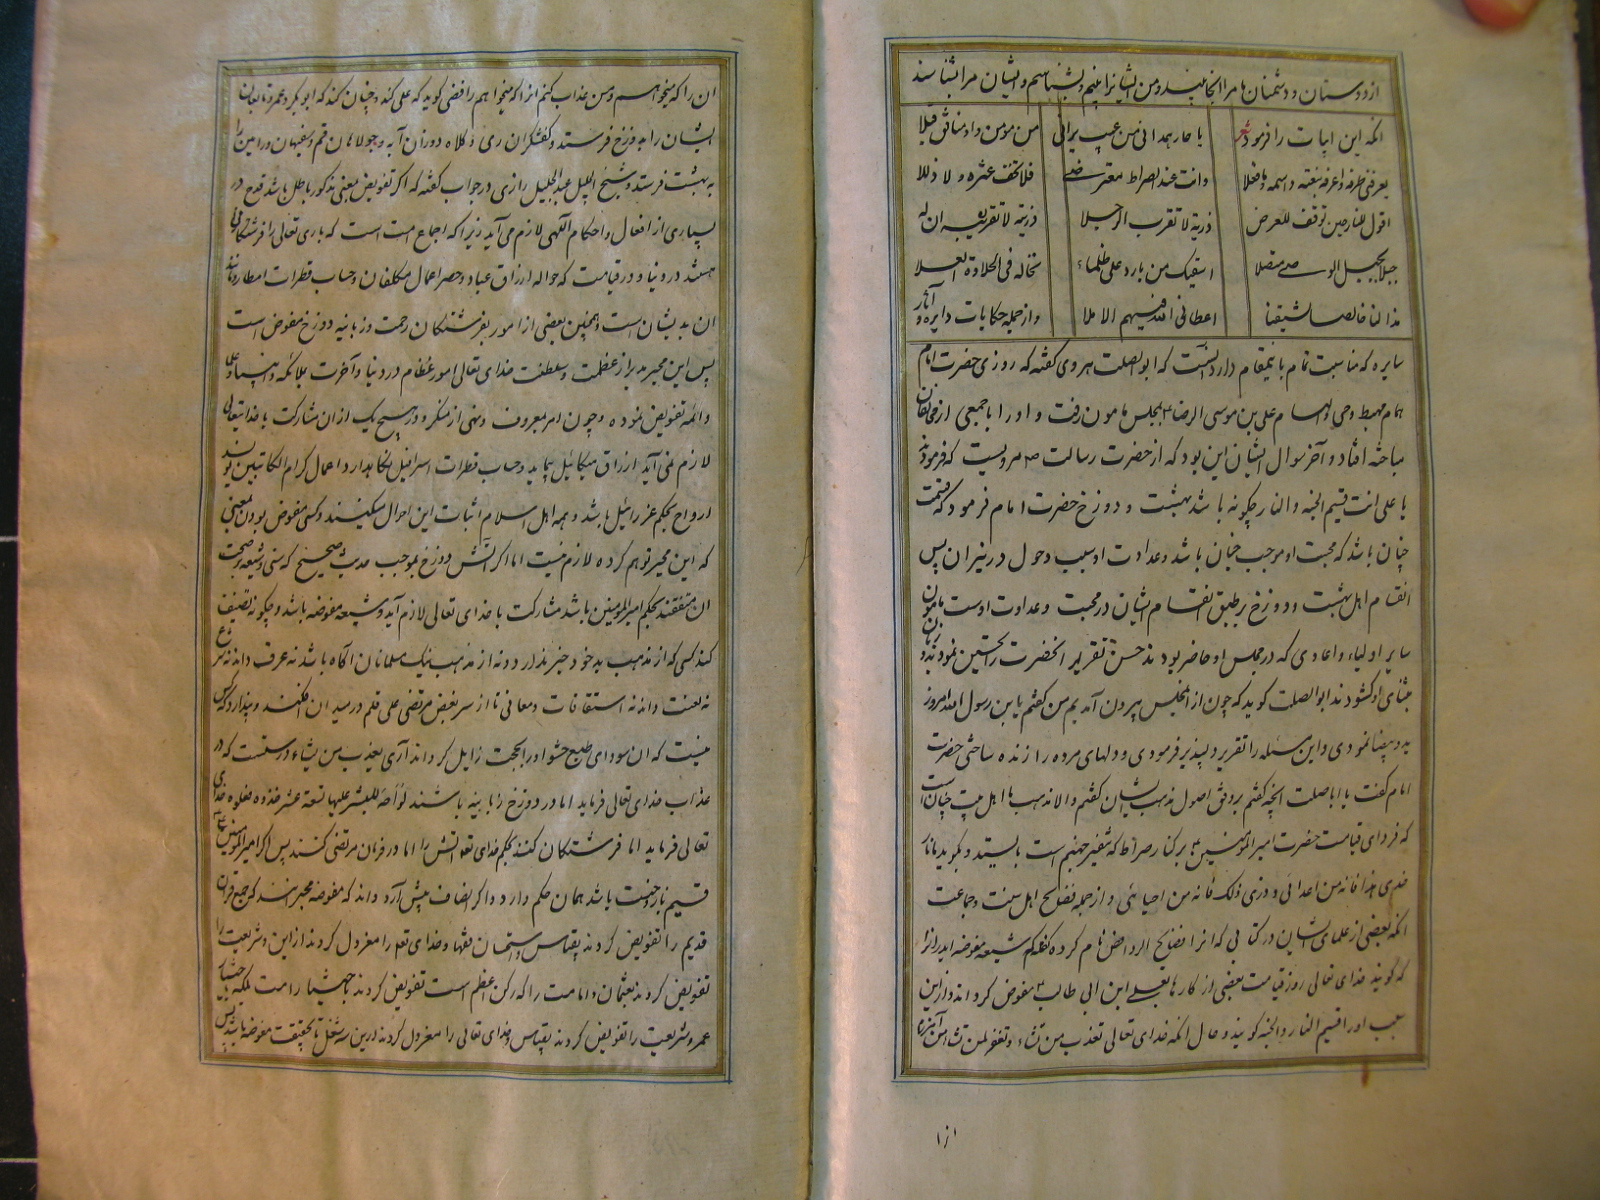 از دوستان و دشمنان ما مرا انجا بیند و من ایشانرا بینم و بشناسم و ایشان مرا بشناسند
انکه این ابیات را فرمود شعر یا حار همدانی من یمت یرنی من مومن او منافق قبلا
یعرفنی طرفه و اعرفه بنعته و اسمه و ما فعلا وانت عند الصراط معترضی فلا تخف عثرة و لا زللا
اقول للنار حین توقف للعرض ذریه لا تقرب الرجلا ذریه لا تقربیه ان له
حبلا بحبل الوصی متصلا اسقیک من بارد علی ظماء تخاله فی الحلاوة العسلا
هذا لنا خالصا لشیعتنا اعطانی الله فیهم الاملا و از جمله حکایات دایره و آثار
سایره که مناسبت تمام باینمقام دارد انست که ابو الصلت هروی گفته که روزی حضرت امام
همام مهبط وحی و الهام علی بن موسی الرضا بمجلس مامون رفت و او را با جمعی از مخالفان
مباحثه افتاد و آخر سوال ایشان این بود که از حضرت رسالت مرویست که فرمودند
یا علی انت قسیم الجنه و النار چکونه باشد بهشت و دوزخ حضرت امام فرمود که قسمت
چنان باشد که محبت او موجب جنان باشد و عداوت او سبب دخول در نیران پس
انقسام اهل بهشت و دوزخ بر طبق انقسام ایشان در محبت و عداوت اوست مامون
سایر اولیاء و اعادی که در مجلس او حاضر بودند حسن تقریر انحضرت را تحسین نمودند و زبان
بثنای او کشودند ابو الصلت کوید که چون از انمجلس بیرون آمدیم من کفتم یا بن رسول الله امروز
ید و بیضا نمودی و این مسئله را تقریر دلپذیر فرمودی و دلهای مرده را زنده ساختی حضرت
امام کفت یا ابا صلت انچه کفتم بر وفق اصول مذهب ایشان کفتم والا مذهب ما اهل بیت چنانست
که فردای قیامت حضرت امیر المؤمنین بر کنار صراط که شفیر جهنم است بایستد و بکوید یا نار
خذی هذا فانه من اعدائی و ذری ذلک فانه من احبائی و از جمله فضایح اهل سنت و جماعت
انکه بعضی از علمای ایشان در کتابی که انرا فضایح الروافض نام کرده گفته که شیعه مفوضه اند زیرا
که کویند خدای تعالی روز قیامت بعضی از کارها بعلی ابن ابی طالب مفوض کرداند و از این
سبب او را قسیم النار و الجنه کویند و حال انکه خدای تعالی تعذب من تشاء و تغفر لمن تشاء من
از
ان را که میخواهم و من عذاب کنم انرا که میخواهم رافضی کوید که علی کند و چنان کند که ابو بکر و عمر و تابعان
ایشان را بدوزخ فرستد و کفشکران ری و کلاه دوزان آبه و جولاهان قم و سفیهان ورامین را
به بهشت فرستد و شیخ الجلیل عبد الجلیل رازی در جواب کفته که اکر تفویض بمعنی مذکور باطل باشد قدح در
بسیاری از افعال و احکام آلهی لازم می آید زیرا که اجماع امت است که باری تعالی را فرشتکانی
هستند در دنیا و در قیامت که حواله ارزاق عباد و حصر اعمال مکلفان و حساب قطرات امطار و مانند
ان بدیشان است و همچنین بعضی از امور بفرشتکان رحمت و زبانیه دوزخ مفوض است
پس این مجبر مدبر از عظمت و سلطنت خدای تعالی امور عظام در دنیا و آخرت بملائکه و انبیا و علما
و ائمه تفویض نموده و چون امر بمعروف و نهی از منکر و در هیچ یک از ان مشارکت با خدا یتعالی
لازم نمی آید ارزاق میکائیل پیماید و حساب قطرات اسرافیل نکاهدارد و اعمال کرام الکاتبین نویسند
ارواح بحکم عزرائیل باشد و همه اهل اسلام اثبات این احوال میکنند و کسی مفوض بودن بمعنی
که این مجبر توهم کرده لازم نیست اما اکر آتش دوزخ بموجب حدیث صحیح که سنی و شیعه بر صحت
ان متفقند بحکم امیر المومنین باشد مشارکت با خدای تعالی لازم آید و شیعه مفوضه باشد و چکونه تصنیف
کند کسی که از مذهب بد خود خبر ندارد و نه از مذهب نیک مسلمانان آکاه باشد نه عرف داند نه شرع
نه لغت داند نه اشتقاقات و معانی تا از سر بغض مرتضی علی قلم در میدان افکند و پندارد که کس
نیست که ان سودای طبع حشو او را بحجت زایل کرداند آری یعذب من یشاء درستست که در
عذاب خدای تعالی فرماید اما در دوزخ زبانیه باشند لواحة للبشر علیها تسعة عشر خذوه فغلوه خدای
تعالی فرماید اما فرشتکان کنند بحکم خدای تعالی آتش را اما در فرمان مرتضی کنند پس اکر امیر المومنین
قسیم نار و جنت باشد همان حکم دارد و اکر انصاف پیش آرد داند که مفوضه مجبرانند که جمیع قرآن
قدیم را تفویض کردند بقیاس و استحسان فقها و خدای تعالی را معزول کردند از این و شریعت را
تفویض کردند بعثمان و امامت را که رکن اعظم است تفویض کردند باختیار امت بلکه باختیار
عمر و شریعت را تفویض کردند بقیاس و خدای تعالی را معزول کردند درین سه شغل تا بحقیقت مفوضه باشند پس